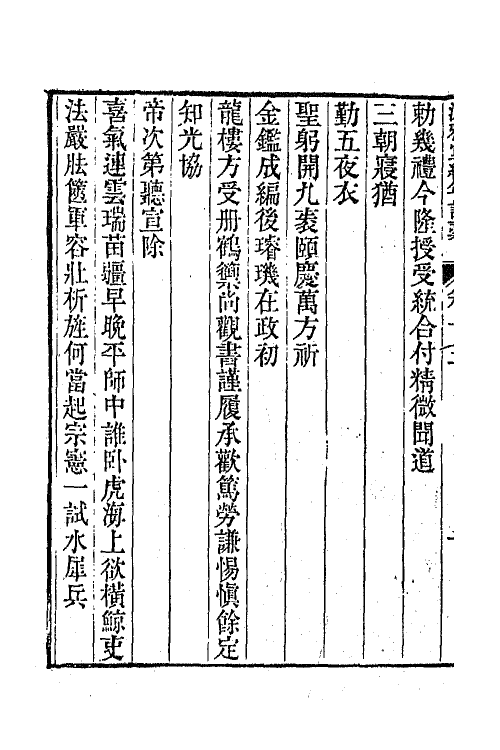 勅幾禮今隆授受統合付精微聞道
三朝寢猶
勤五夜衣
聖躬開九袠頤慶萬方祈
金鑑成編後璿璣在政初
龍樓方受册鶴籞尚觀書謹履承歡篤勞謙惕愼餘定
知光協
帝次第聽宣除
喜氣連雲瑞苗疆早晚平師中誰卧虎海上欲橫鯨吏
法嚴胠篋軍容壯析旌何當起宗慤一試水犀兵